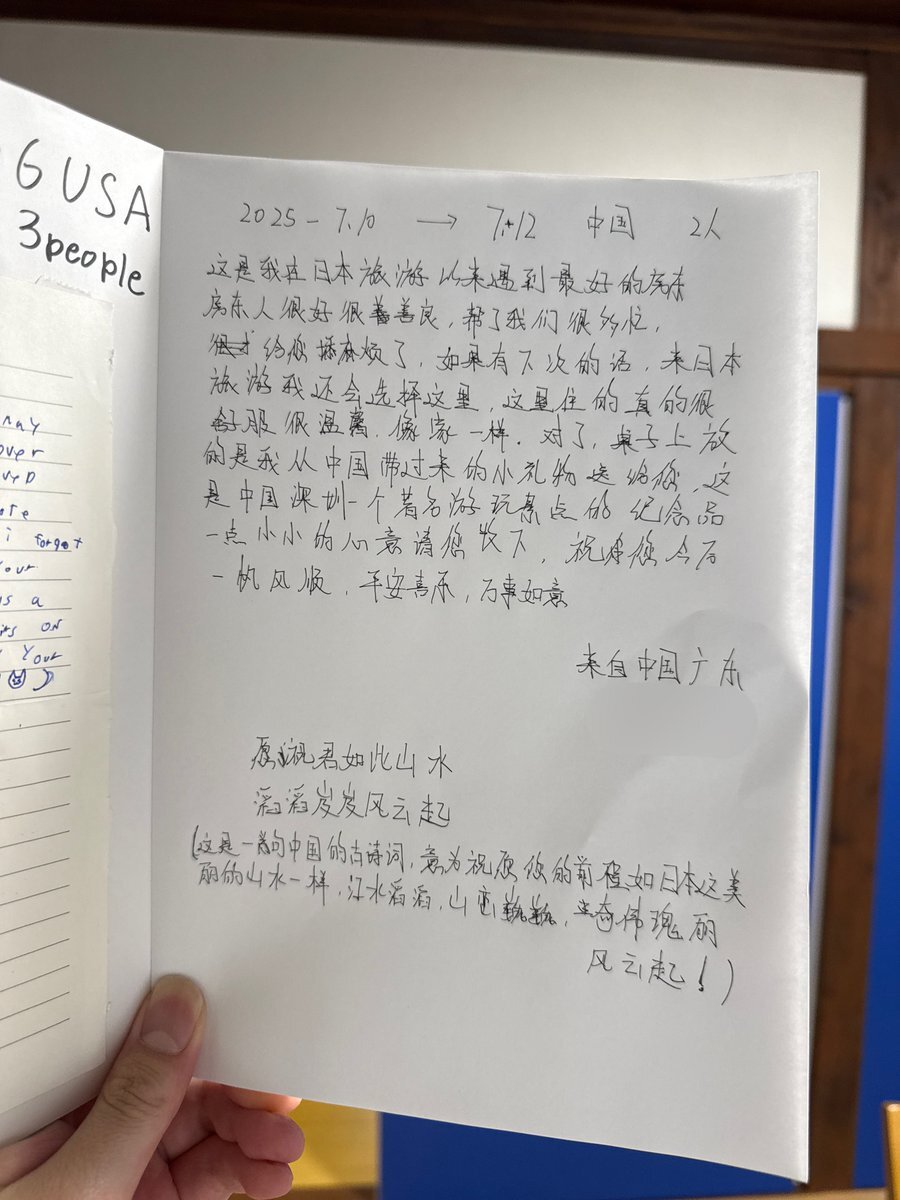 6 USA
3people
nay
over
ore
i forgot
your
is a
its ON
Your
2025-7.10 → 7.12 中国 2人
这是我在日本旅游以来遇到最好的房东
房东人很好很善良,帮了我们很多忙,
给您添麻烦了,如果有下次的话,来日本
旅游我还会选择这里,这里住的真的很
舒服很温馨,像家一样.对了,桌子上放
的是我从中国带过来的小礼物送给您,这
是中国深圳一个著名游玩景点的纪念品
一点小小的心意请您收下,祝您今后
一帆风顺,平安喜乐,万事如意
来自中国广东
愿祝君如此山水
滔滔岌岌风云起
(这是一句中国的古诗词,意为祝愿您的前程如日本这美
丽的山水一样,江水滔滔,山峦,奇伟瑰丽
风云起!)